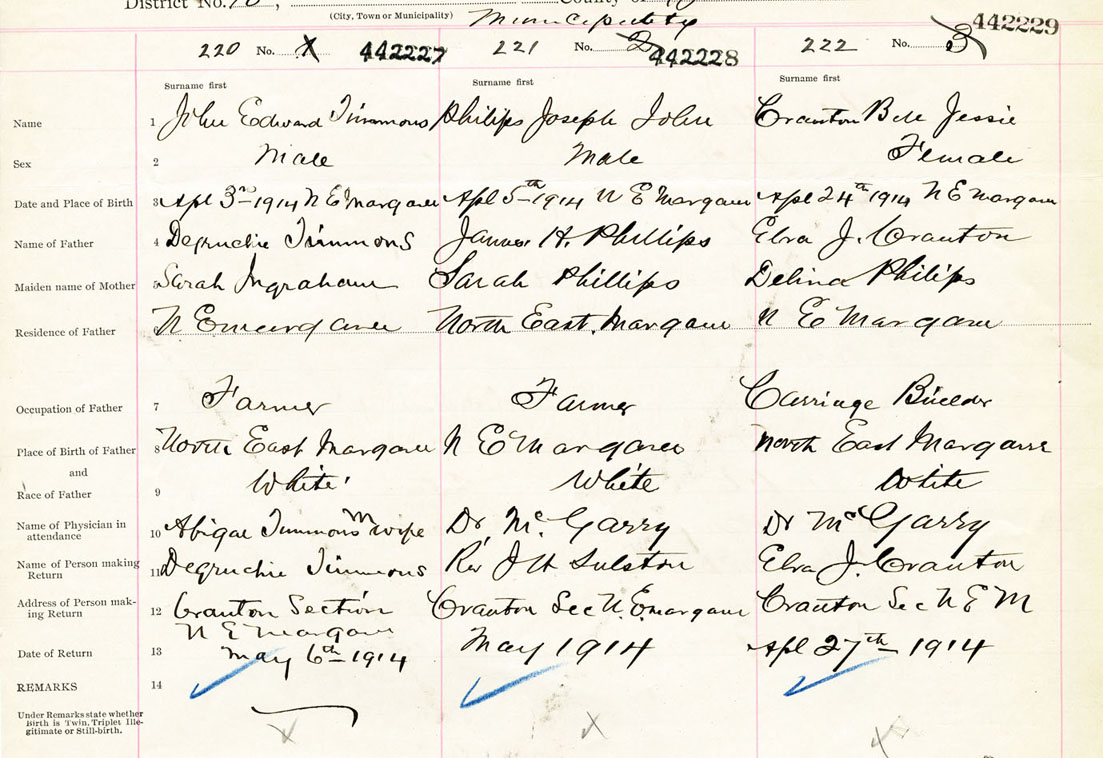 District No. 10, County of
(City, Town or Municipality) Municipality
220 No. X 442227 221 No. 2 442228 222 No. 3 442229
Surname first Surname first Surname first
Name 1 John Edward Timmons Philips Joseph John Cranton Bell Jessie
Sex 2 Male Male Female
Date and Place of Birth 3 Apl 3rd 1914 N E Margaree Apl 5th 1914 N E Margaree Apl 24th 1914 N E Margaree
Name of Father 4 Degruchie Timmons James H. Phillips Elva J. Cranton
Maiden name of Mother 5 Sarah Ingraham Sarah Phillips Delina Philips
Residence of Father N E Margaree North East Margaree N E Margaree
Occupation of Father 7 Farmer Farmer Carriage Builder
Place of Birth of Father 8 North East Margaree N E Margaree North East Margaree
and
Race of Father 9 White White White
Name of Physician in
attendance 10 Abigal Timmons M wife Dr McGarry Dr McGarry
Name of Person making
Return 11 Degruchie Timmons Rev J H Sulston Elva J. Cranton
Address of Person mak-
ing Return 12 Cranton Section Cranton Sec N. E. Margaree Cranton Sec N E M
N E Margaree
Date of Return 13 May 6th 1914 May 1914 Apl 27th 1914
REMARKS 14
Under Remarks state whether
Birth is Twin, Triplet Ille-
gitimate or Still-birth.